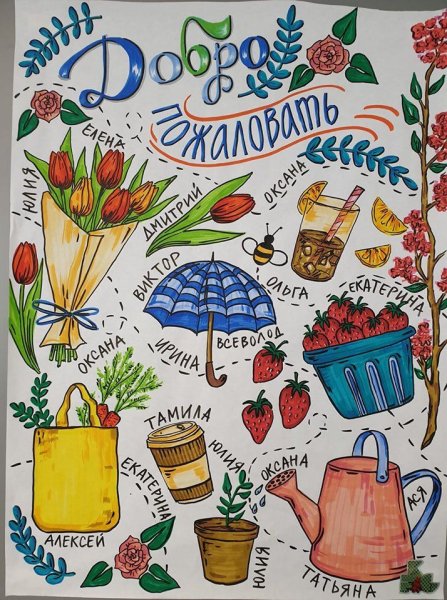 Добро
пожаловать
ЕЛЕНА
ЮЛИЯ
ДМИТРИЙ
ОКСАНА
ВИКТОР
ОЛЬГА
ЕКАТЕРИНА
ОКСАНА
ИРИНА
ВСЕВОЛОД
ТАМИЛА
ЮЛИЯ
ЕКАТЕРИНА
ОКСАНА
АСЯ
АЛЕКСЕЙ
ЮЛИЯ
ТАТЬЯНА